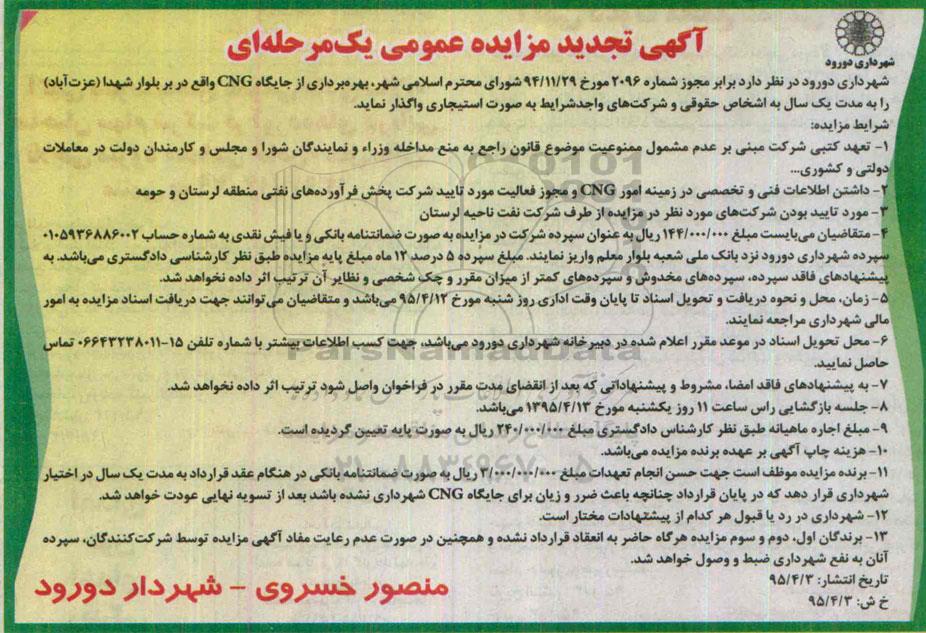 آگهی تجدید مزایده عمومی یک‌مرحله‌ای
شهرداری دورود
شهرداری دورود در نظر دارد برابر مجوز شماره ۲۰۹۶ مورخ ۹۴/۱۱/۲۹ شورای محترم اسلامی شهر، بهره‌برداری از جایگاه CNG واقع در بر بلوار شهدا (عزت‌آباد)
را به مدت یک سال به اشخاص حقوقی و شرکت‌های واجدشرایط به صورت استیجاری واگذار نماید.
شرایط مزایده:
۱- تعهد کتبی شرکت مبنی بر عدم مشمول ممنوعیت موضوع قانون راجع به منع مداخله وزراء و نمایندگان شورا و مجلس و کارمندان دولت در معاملات
دولتی و کشوری...
۲- داشتن اطلاعات فنی و تخصصی در زمینه امور CNG و مجوز فعالیت مورد تایید شرکت پخش فرآورده‌های نفتی منطقه لرستان و حومه
۳- مورد تایید بودن شرکت‌های مورد نظر در مزایده از طرف شرکت نفت ناحیه لرستان
۴- متقاضیان می‌بایست مبلغ ۱۴۴/۰۰۰/۰۰۰ ریال به عنوان سپرده شرکت در مزایده به صورت ضمانتنامه بانکی و یا فیش نقدی به شماره حساب ۰۱۰۵۹۳۶۸۸۶۰۰۲
سپرده شهرداری دورود نزد بانک ملی شعبه بلوار معلم واریز نمایند. مبلغ سپرده ۵ درصد ۱۲ ماه مبلغ پایه مزایده طبق نظر کارشناسی دادگستری می‌باشد. به
پیشنهادهای فاقد سپرده، سپرده‌های مخدوش و سپرده‌های کمتر از میزان مقرر و چک شخصی و نظایر آن ترتیب اثر داده نخواهد شد.
۵- زمان، محل و نحوه دریافت و تحویل اسناد تا پایان وقت اداری روز شنبه مورخ ۹۵/۴/۱۲ می‌باشد و متقاضیان می‌توانند جهت دریافت اسناد مزایده به امور
مالی شهرداری مراجعه نمایند.
۶- محل تحویل اسناد در موعد مقرر اعلام شده در دبیرخانه شهرداری دورود می‌باشد، جهت کسب اطلاعات بیشتر با شماره تلفن ۱۵-۰۶۶۴۳۲۳۸۰۱۱ تماس
حاصل نمایید.
۷- به پیشنهادهای فاقد امضا، مشروط و پیشنهاداتی که بعد از انقضای مدت مقرر در فراخوان واصل شود ترتیب اثر داده نخواهد شد.
۸- جلسه بازگشایی راس ساعت ۱۱ روز یکشنبه مورخ ۱۳۹۵/۴/۱۳ می‌باشد.
۹- مبلغ اجاره ماهیانه طبق نظر کارشناس دادگستری مبلغ ۲۴۰/۰۰۰/۰۰۰ ریال به صورت پایه تعیین گردیده است.
۱۰- هزینه چاپ آگهی بر عهده برنده مزایده می‌باشد.
۱۱- برنده مزایده موظف است جهت حسن انجام تعهدات مبلغ ۳/۰۰۰/۰۰۰/۰۰۰ ریال به صورت ضمانتنامه بانکی در هنگام عقد قرارداد به مدت یک سال در اختیار
شهرداری قرار دهد که در پایان قرارداد چنانچه باعث ضرر و زیان برای جایگاه CNG شهرداری نشده باشد بعد از تسویه نهایی عودت خواهد شد.
۱۲- شهرداری در رد یا قبول هر کدام از پیشنهادات مختار است.
۱۳- برندگان اول، دوم و سوم مزایده هرگاه حاضر به انعقاد قرارداد نشده و همچنین در صورت عدم رعایت مفاد آگهی مزایده توسط شرکت‌کنندگان، سپرده
آنان به نفع شهرداری ضبط و وصول خواهد شد.
تاریخ انتشار: ۹۵/۴/۳
خ ش: ۹۵/۴/۳
منصور خسروی - شهردار دورود
ParsNamadData